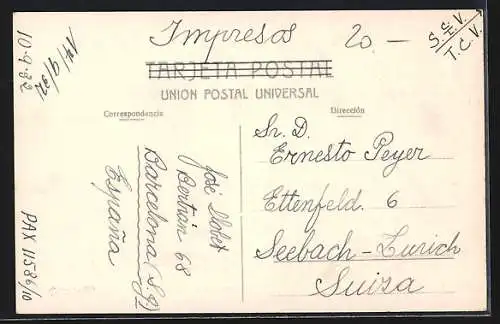 Impresos
20.—
S.E.V.
T.C.V.
10-9-32
14/9/32
TARJETA POSTAL
UNION POSTAL UNIVERSAL
Correspondencia
Dirección
José Llobet
Bertrán 68
Barcelona (S.G)
España
Sr. D.
Ernesto Peyer
Ettenfeld. 6
Seebach-Zurich
Suiza
PAX 11586/10